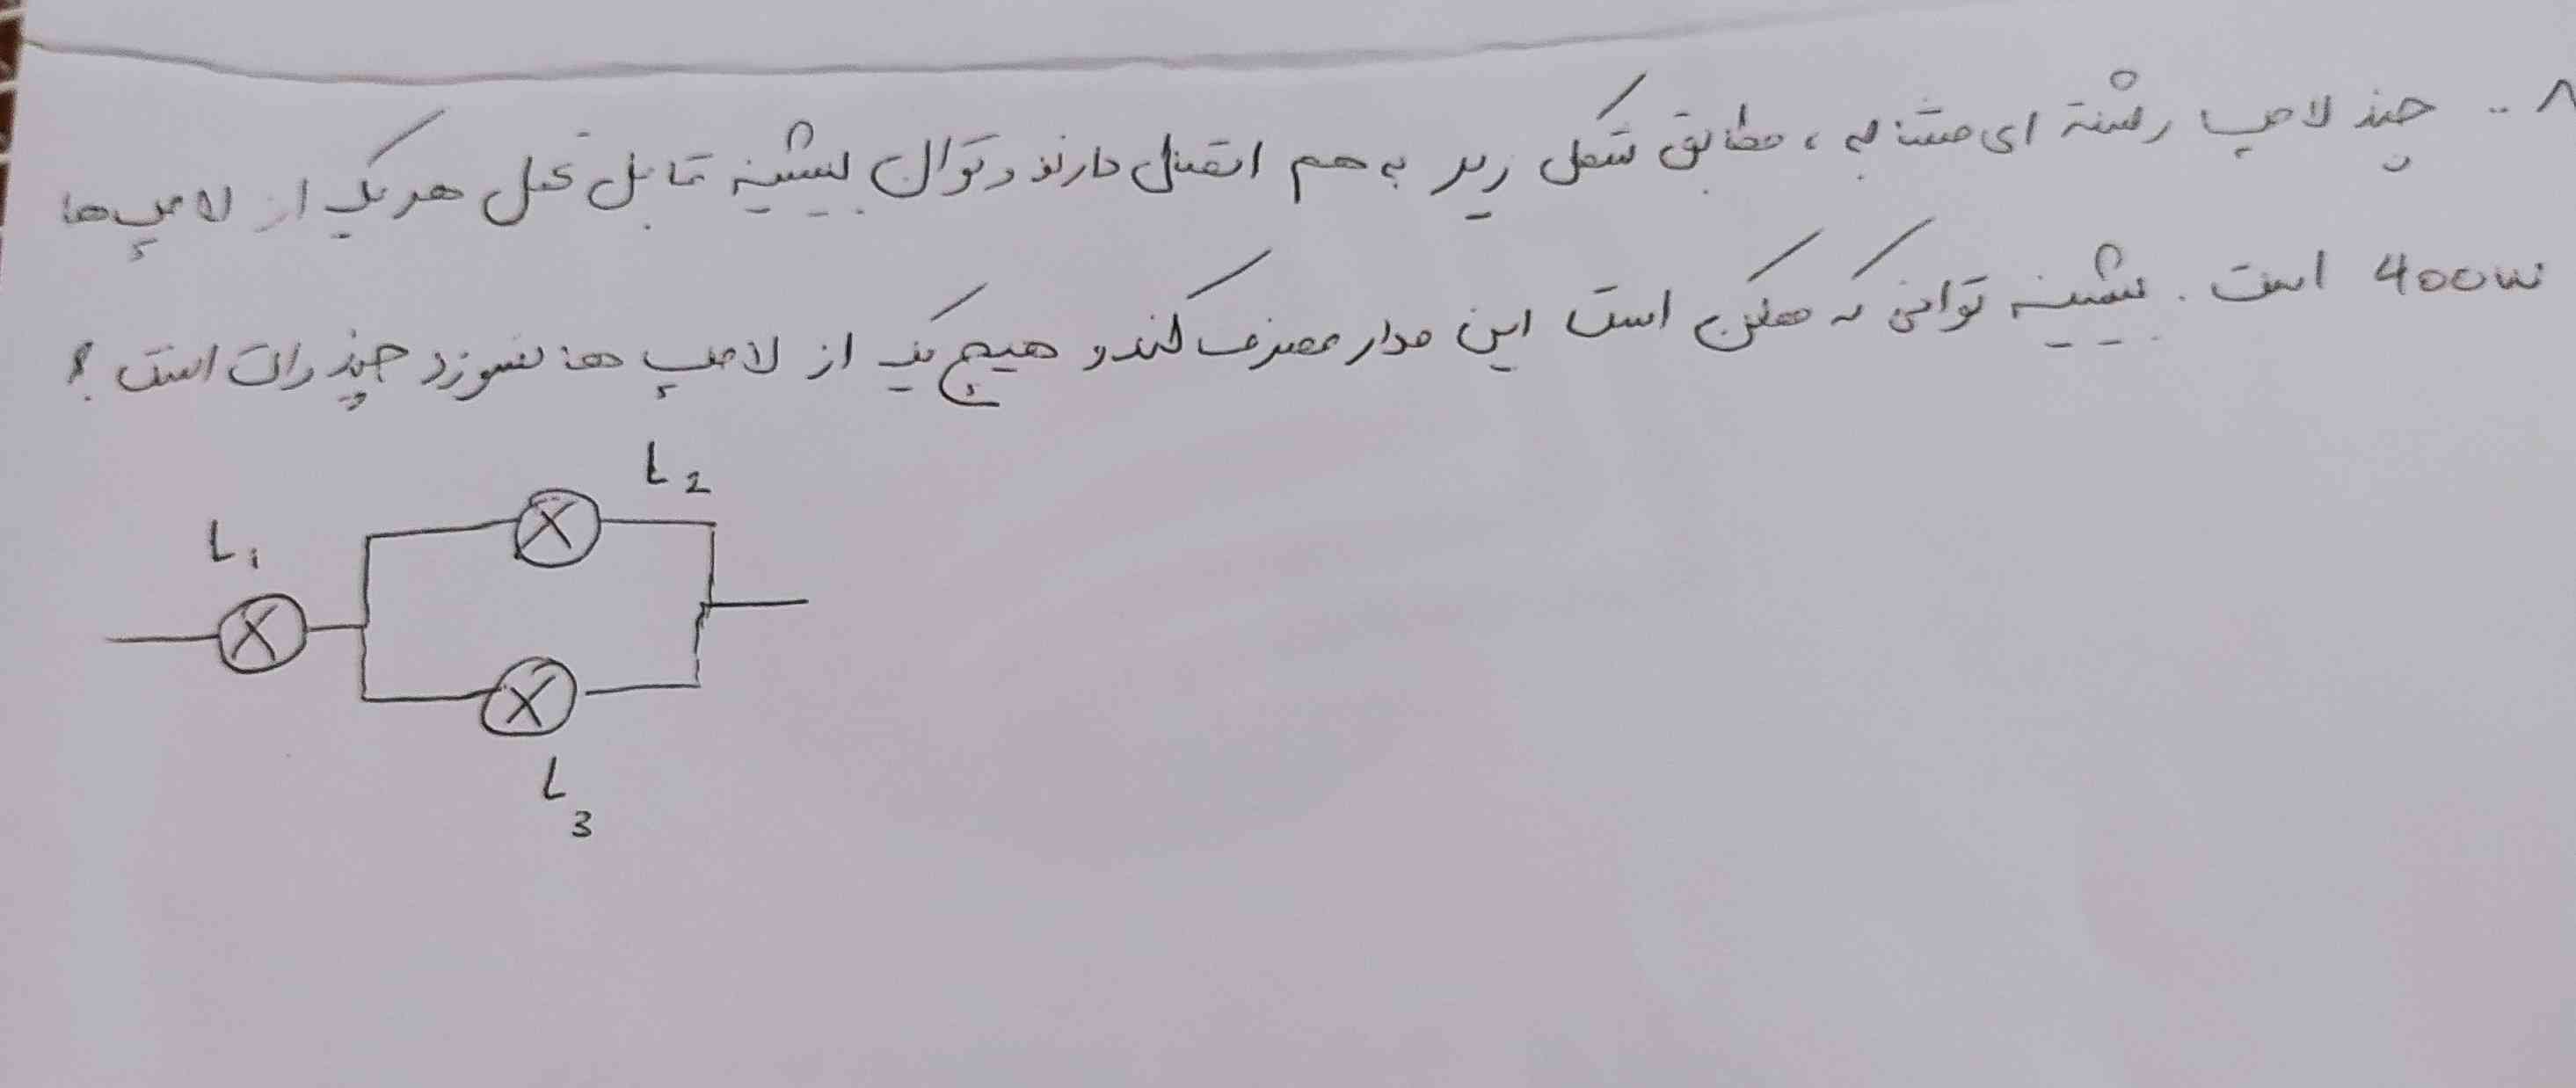 ۸.. چند لامپ رشته ای مشابه ، مطابق شکل زیر به هم اتصال دارند و توان بیشینه قابل تحمل هر یک از لامپ ها
400w است . بیشینه توانی که ممکن است این مدار مصرف کند و هیچ یک از لامپ ها نسوزد چند وات است ؟
L2
L1
L3